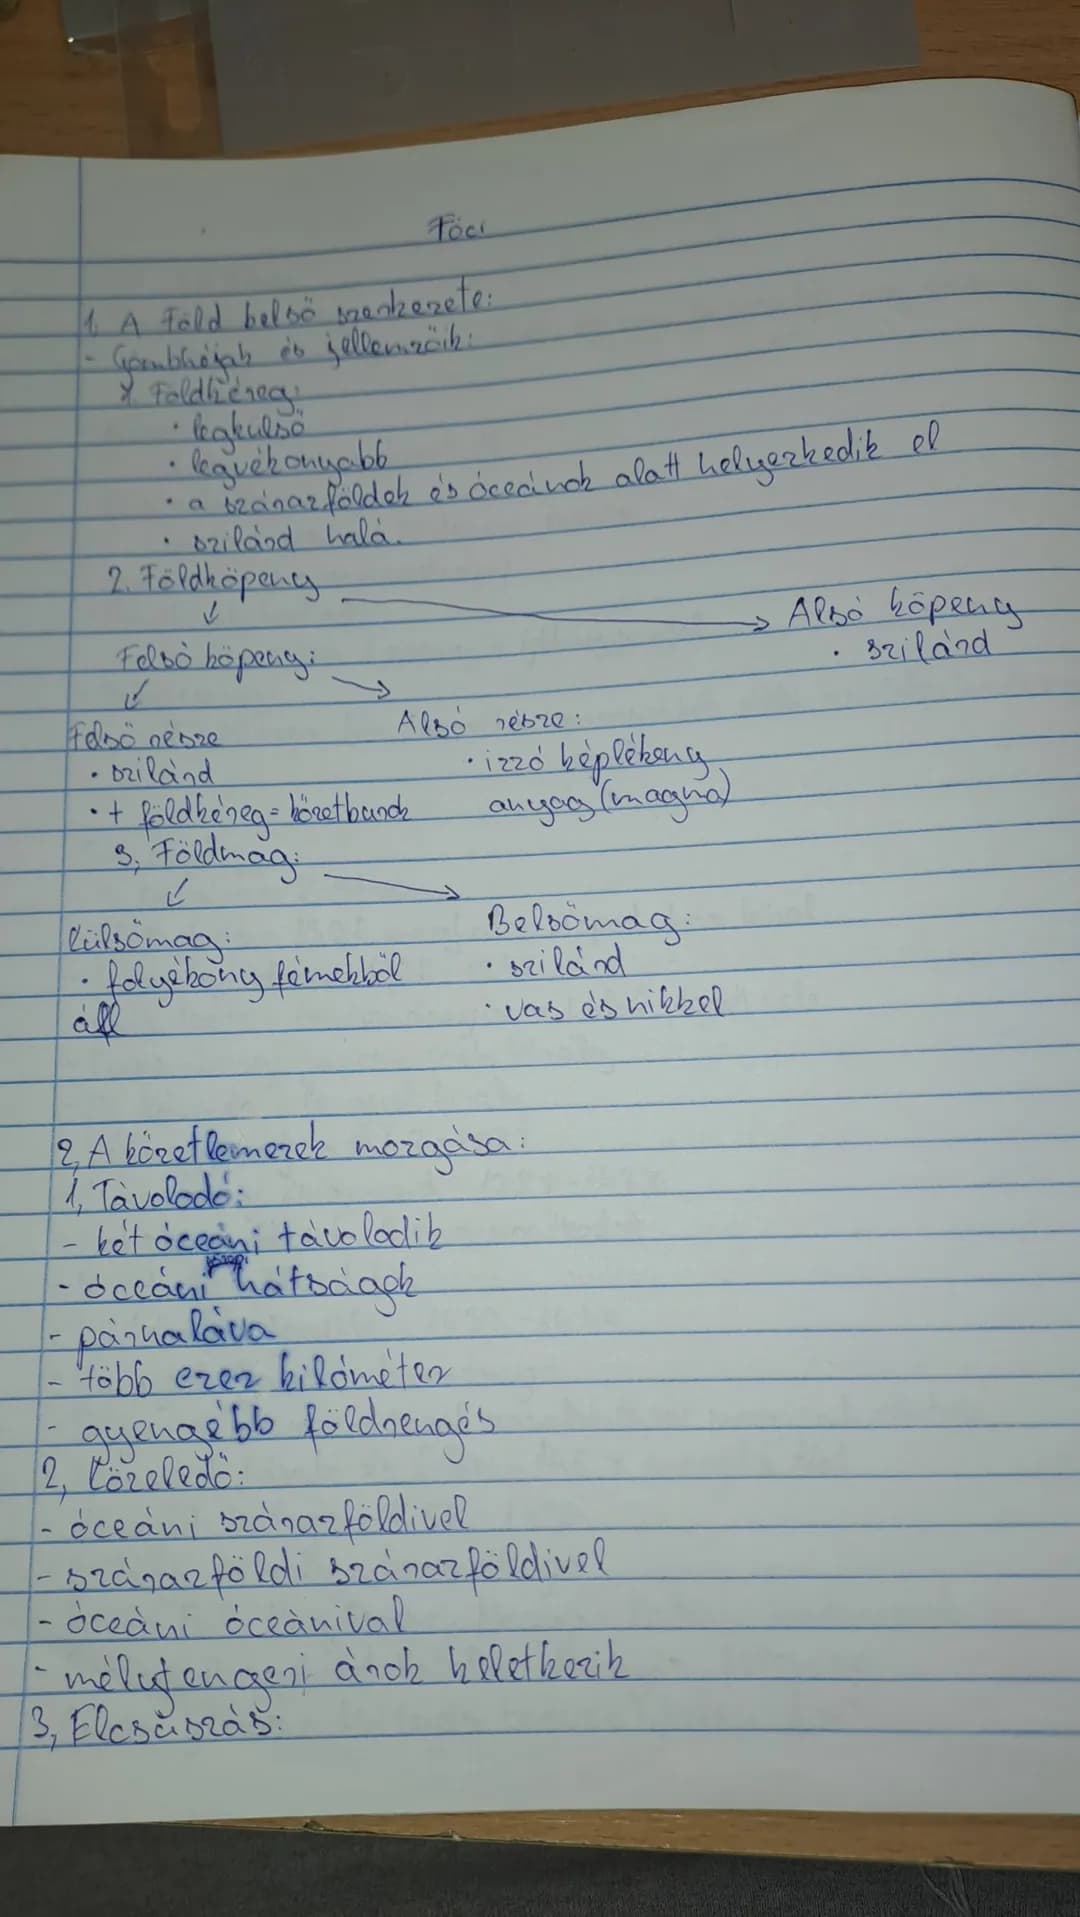 Föci
1. A Föld belső szerkezete:
- Gömbhéjak és jellemzőik:
Földkéreg:
· legkülső
· legvékonyabb
· a szárazföldek és óceánok alatt helyezkedik el
· szilárd halá.
2. Földköpeny
Alsó köpeny
· szilárd
Felső köpeny:
Felső része
Alsó része:
· szilárd
· izzó képlékeny
· + földkéreg = kőzetburok
anyag (magma)
3, Földmag:
Külsőmag:
Belsőmag:
· folyékony fémekből
· szilárd
áll
· vas és nikkel
2, A kőzetlemezek mozgása:
1, Távolodó:
- két óceáni távolodik
- óceáni hátságok
- párnaláva
- több ezer kilóméter
- gyengébb földrengés
2, Közeledő:
- óceáni szárazföldivel
- szárazföldi szárazföldivel
- óceáni óceánival
- mélytengeri árok keletkezik
3, Elcsúszás: